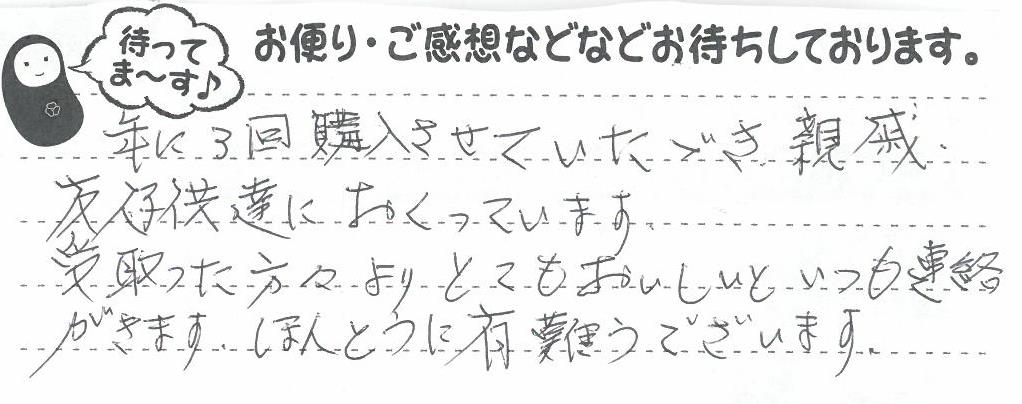 待って
ま〜す♪
お便り・ご感想などなどお待ちしております。
年に3回購入させていただき親戚、
友子供達におくっています。
受取った方々よりとてもおいしいといつも連絡
がきます。ほんとうに有難うございます。